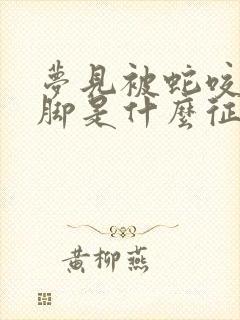 夢見被蛇咬
腳是什麼征
黃柳燕